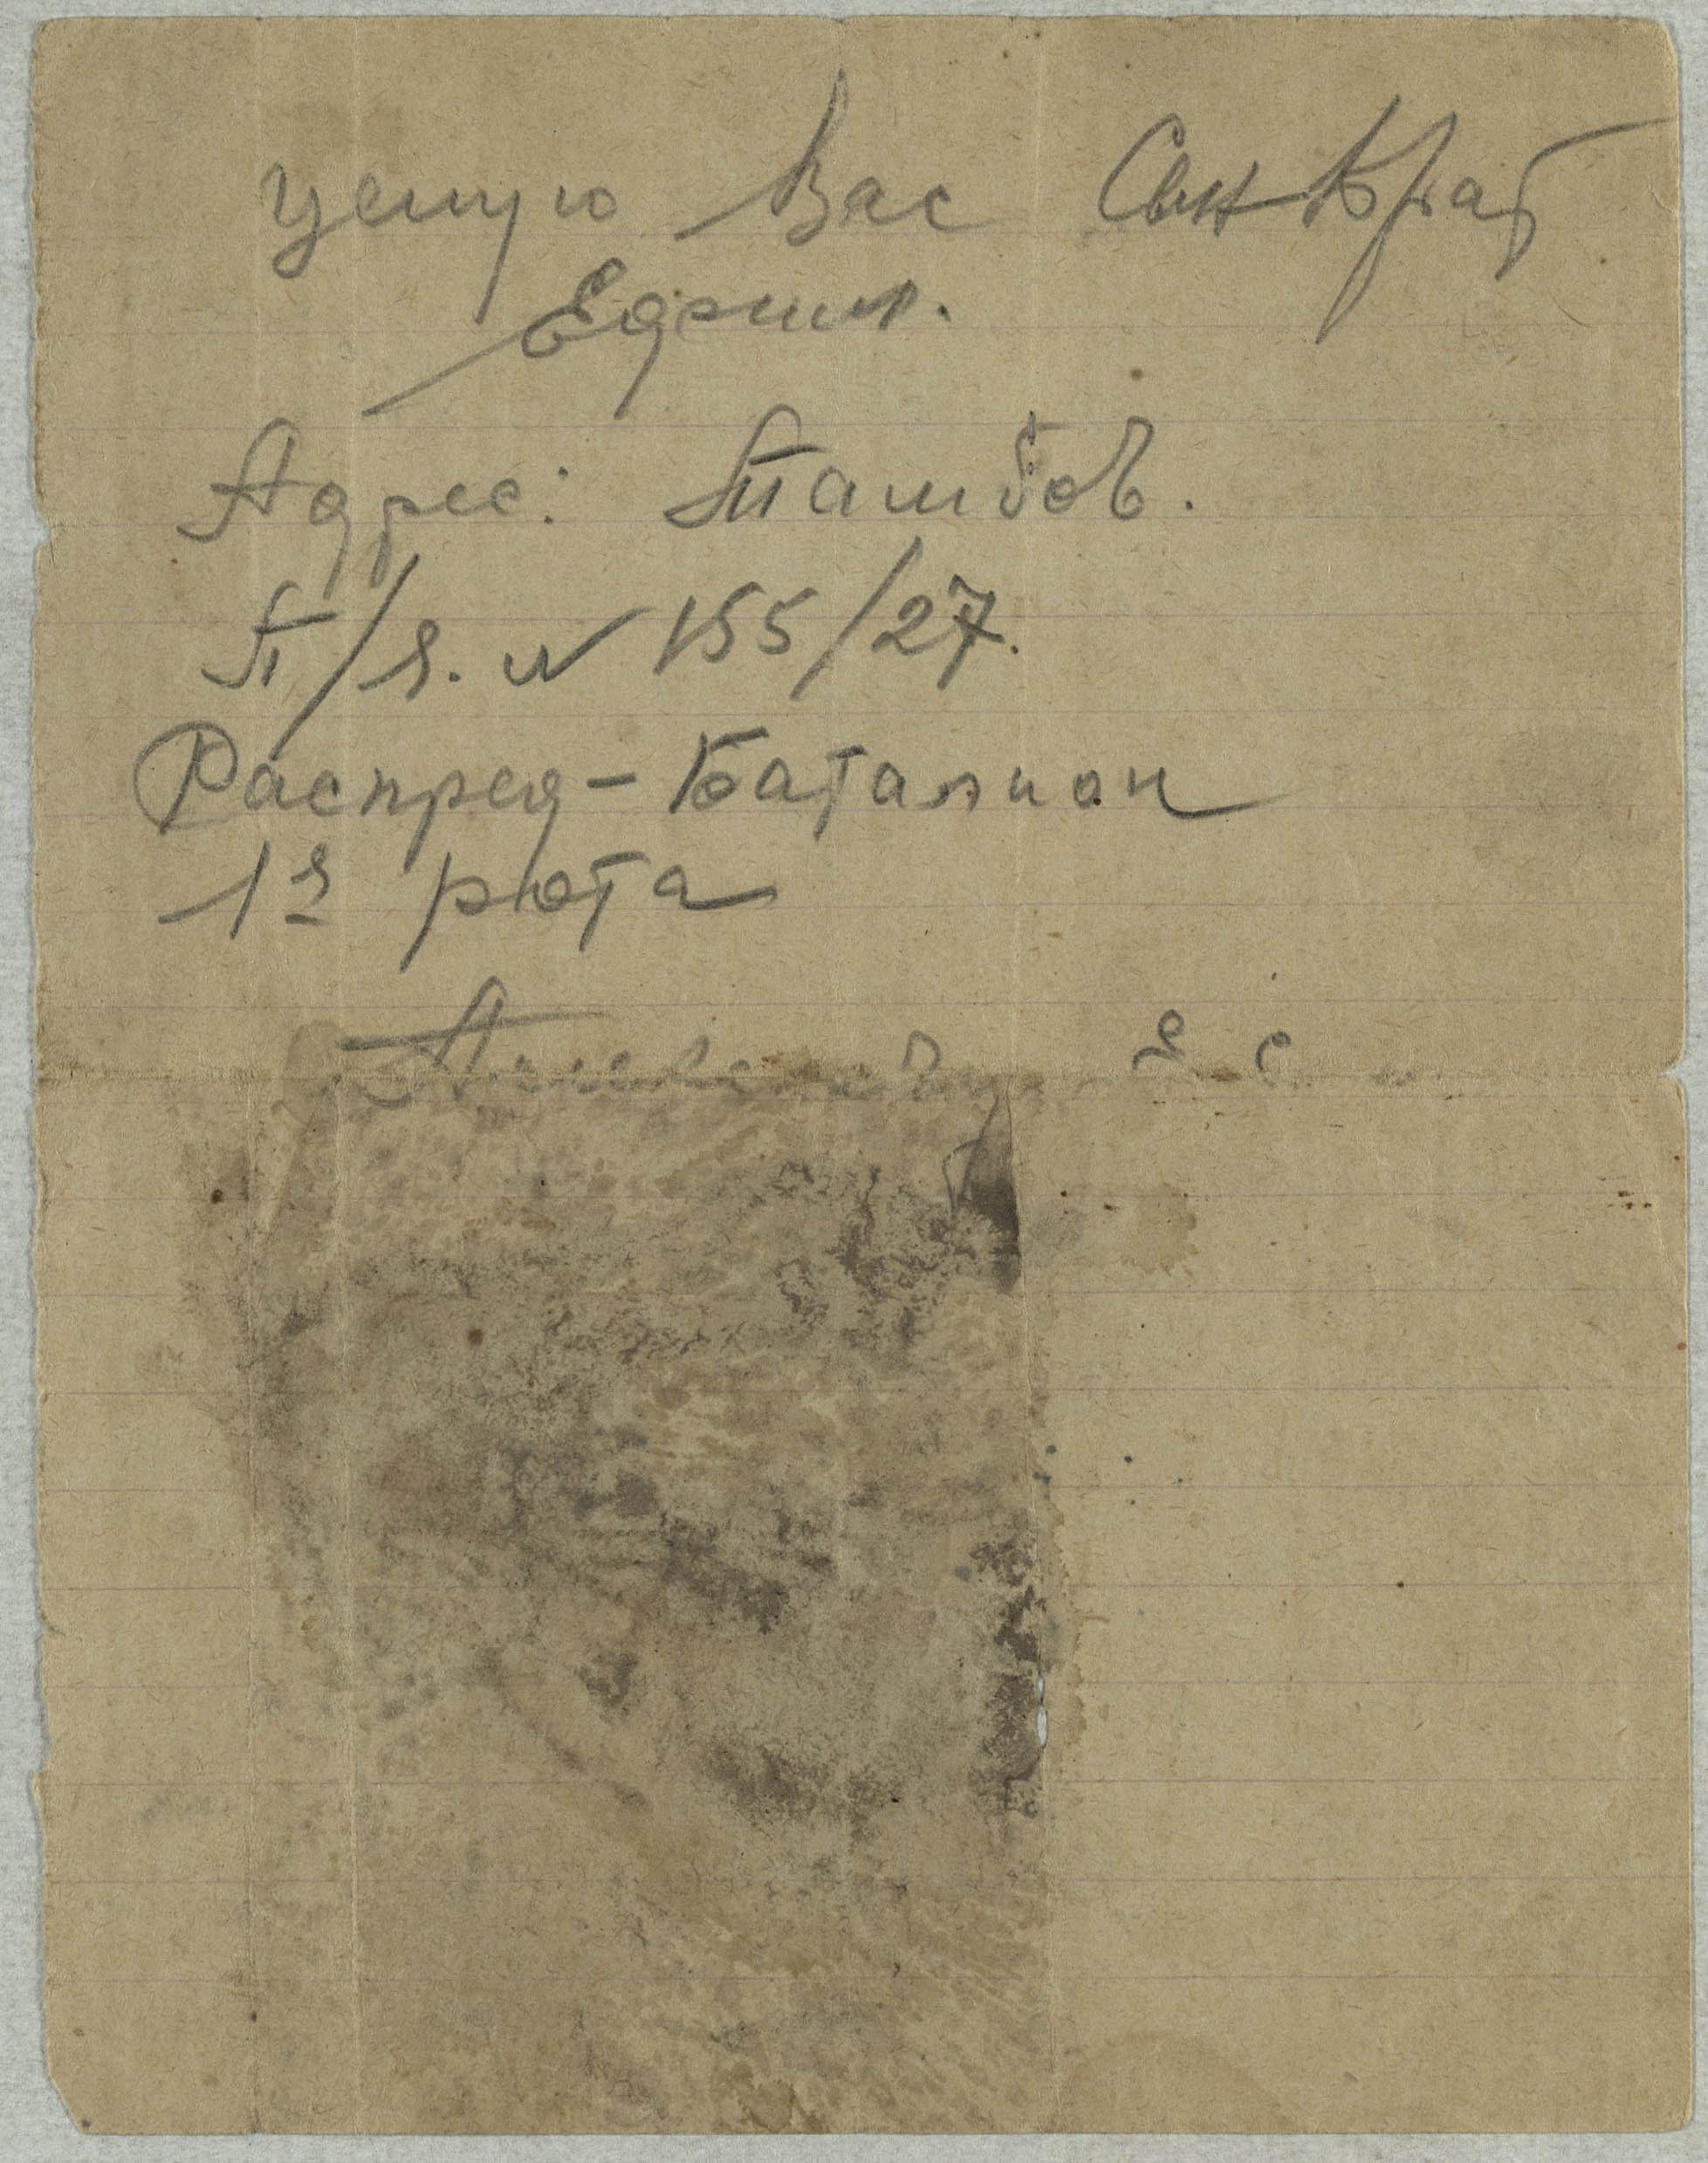 Целую Вас Сын Брат
Адрес: Тамбов.
П/я. N 155/27.
Распред-Баталион
1я рота